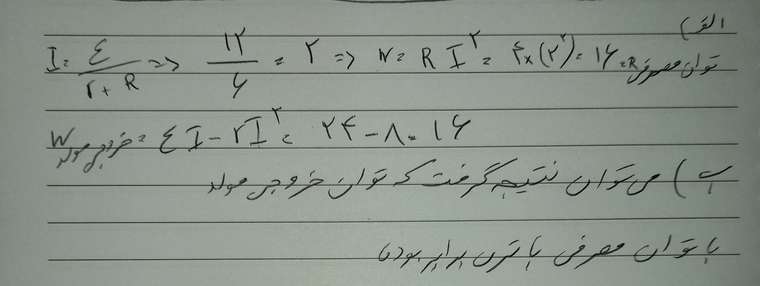 الف)
I = ε / r + R => ۱۲ / ۶ = ۲ => W = R I² = ۴ × (۲²) = ۱۶ = R توان مصرفی
W خروجی مولد = εI - rI² = ۲۴ - ۸ = ۱۶
ب) می توان نتیجه گرفت که توان خروجی مولد
با توان مصرفی باتری برابر بوده